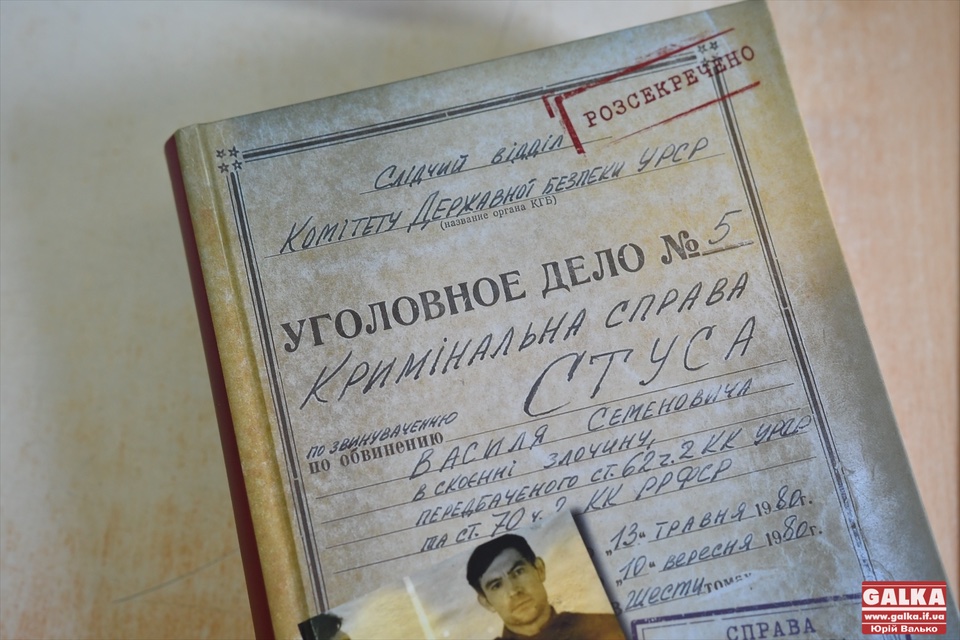 РОЗСЕКРЕЧЕНО
Слідчий відділ
Комітету Державної безпеки УРСР
(название органа КГБ)
УГОЛОВНОЕ ДЕЛО № 5
Кримінальна справа
СТУСА
по звинуваченню
по обвинению
Василя Семеновича
в скоєнні злочину,
передбаченого ст. 62 ч. 2 КК УРСР
та ст. 70 ч. 2 КК РРФСР
„13“ травня 1980г.
„10“ вересня 1980г.
В шести томах
СПРАВА
GALKA
www.galka.if.ua
Юрій Валько